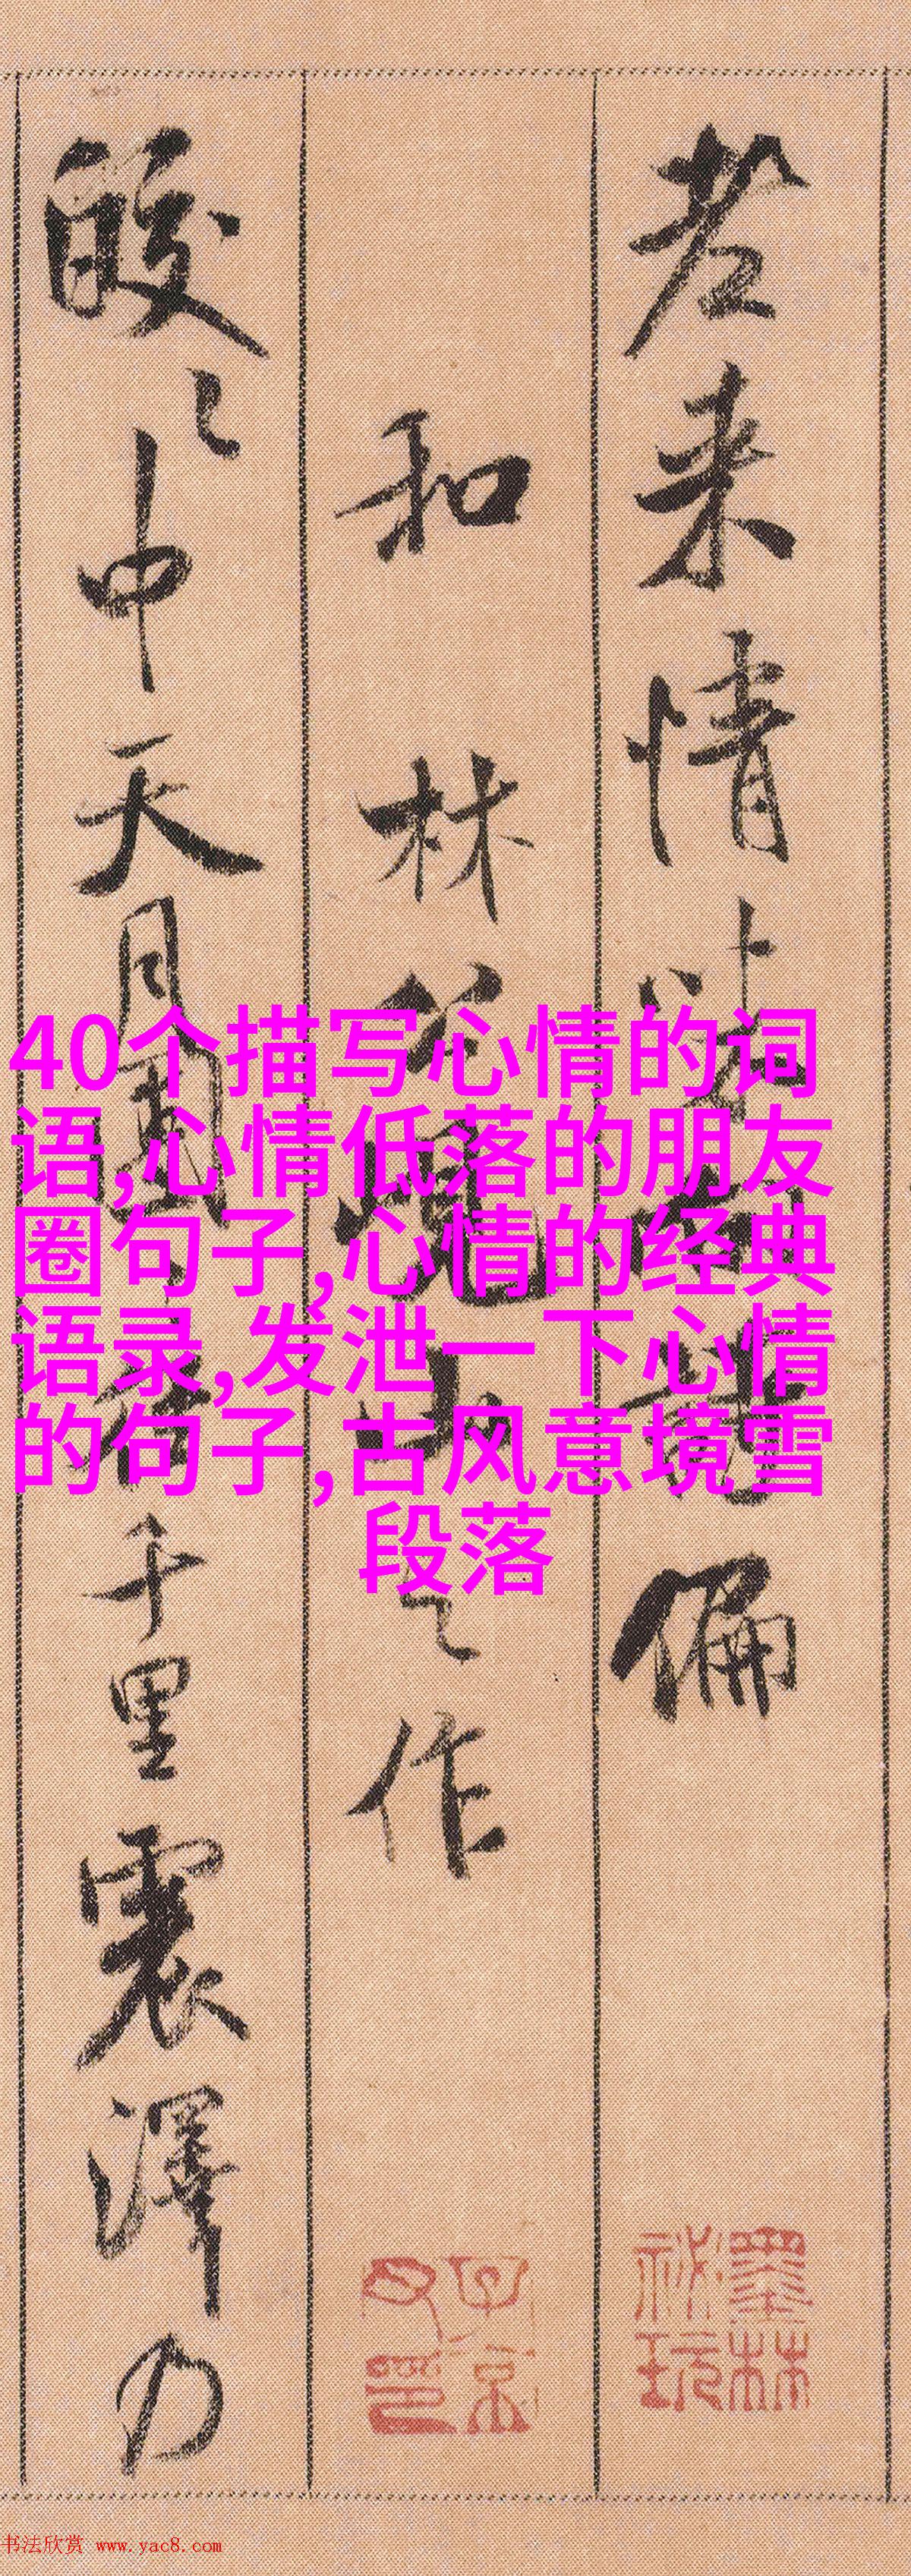 老来情味
偏
和林
之作
皎〻中天月
千里震泽乃
墨林
秘玩
40个描写心情的词
语,心情低落的朋友
圈句子,心情的经典
语录,发泄一下心情
的句子,古风意境雪
段落
书法欣赏 www.yac8.com